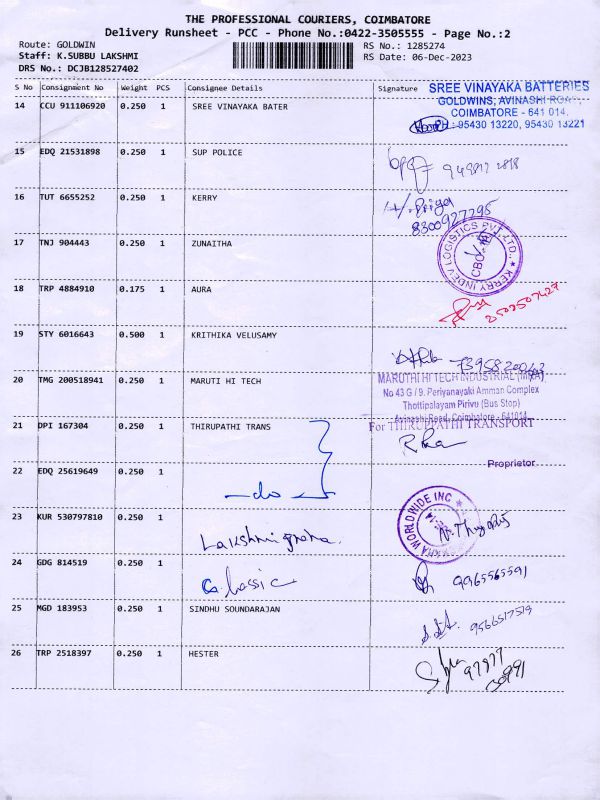 THE PROFESSIONAL COURIERS, COIMBATORE
Delivery Runsheet - PCC - Phone No.:0422-3505555 - Page No.:2
Route: GOLDWIN RS No.: 1285274
Staff: K.SUBBU LAKSHMI RS Date: 06-Dec-2023
DRS No.: DCJB128527402
S No Consignment No Weight PCS Consignee Details Signature
SREE VINAYAKA BATTERIES
14 CCU 911106920 0.250 1 SREE VINAYAKA BATER
GOLDWINS, AVINASHI ROAD,
COIMBATORE - 641 014.
PH : 95430 13220, 95430 13221
15 EDQ 21531898 0.250 1 SUP POLICE
16 TUT 6655252 0.250 1 KERRY
Priya
8300927295
17 TNJ 904443 0.250 1 ZUNAITHA
KERRY INDEV LOGISTICS PVT. LTD.,
CBE
18 TRP 4884910 0.175 1 AURA
2502507427
19 STY 6016643 0.500 1 KRITHIKA VELUSAMY
20 TMG 200518941 0.250 1 MARUTI HI TECH
MARUTHI HI TECH INDUSTRIAL (M&A)
No 43 G / 9. Periyanayaki Amman Complex
Thottipalayam Pirivu (Bus Stop)
Avinashi Road, Coimbatore - 641014
21 DPI 167304 0.250 1 THIRUPATHI TRANS
For THIRUPPATHI TRANSPORT
Proprietor
22 EDQ 25619649 0.250 1 - do -
23 KUR 530797810 0.250 1 Lakshmi
WORLDWIDE INC
24 GDG 814519 0.250 1 Classic
9965565591
25 MGD 183953 0.250 1 SINDHU SOUNDARAJAN
9566517519
26 TRP 2518397 0.250 1 HESTER
97877